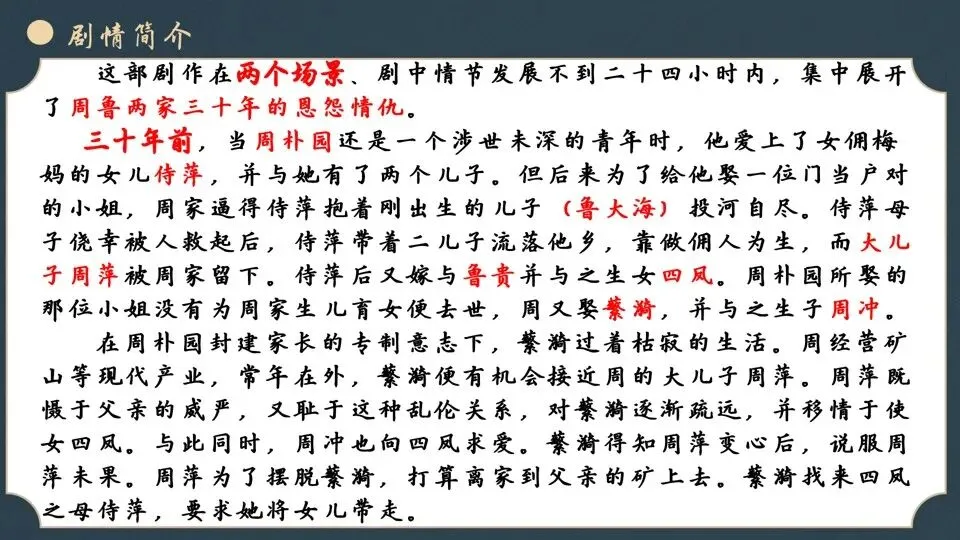 剧情简介
这部剧作在两个场景、剧中情节发展不到二十四小时内，集中展开
了周鲁两家三十年的恩怨情仇。
三十年前，当周朴园还是一个涉世未深的青年时，他爱上了女佣梅
妈的女儿侍萍，并与她有了两个儿子。但后来为了给他娶一位门当户对
的小姐，周家逼得侍萍抱着刚出生的儿子（鲁大海）投河自尽。侍萍母
子侥幸被人救起后，侍萍带着二儿子流落他乡，靠做佣人为生，而大儿
子周萍被周家留下。侍萍后又嫁与鲁贵并与之生女四凤。周朴园所娶的
那位小姐没有为周家生儿育女便去世，周又娶蘩漪，并与之生子周冲。
在周朴园封建家长的专制意志下，蘩漪过着枯寂的生活。周经营矿
山等现代产业，常年在外，蘩漪便有机会接近周的大儿子周萍。周萍既
慑于父亲的威严，又耻于这种乱伦关系，对蘩漪逐渐疏远，并移情于使
女四凤。与此同时，周冲也向四凤求爱。蘩漪得知周萍变心后，说服周
萍未果。周萍为了摆脱蘩漪，打算离家到父亲的矿上去。蘩漪找来四凤
之母侍萍，要求她将女儿带走。